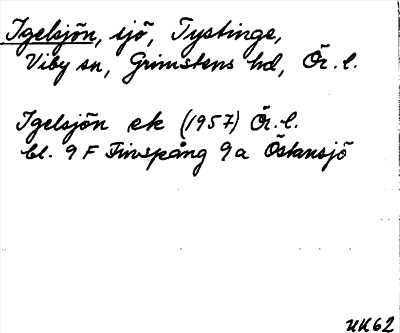 Igelsjön, sjö, Tystinge,
Viby sn, Grimstens hd, Ör. l.
Igelsjön ek (1957) Ör. l.
bl. 9 F Finspång 9a Östansjö
UK62